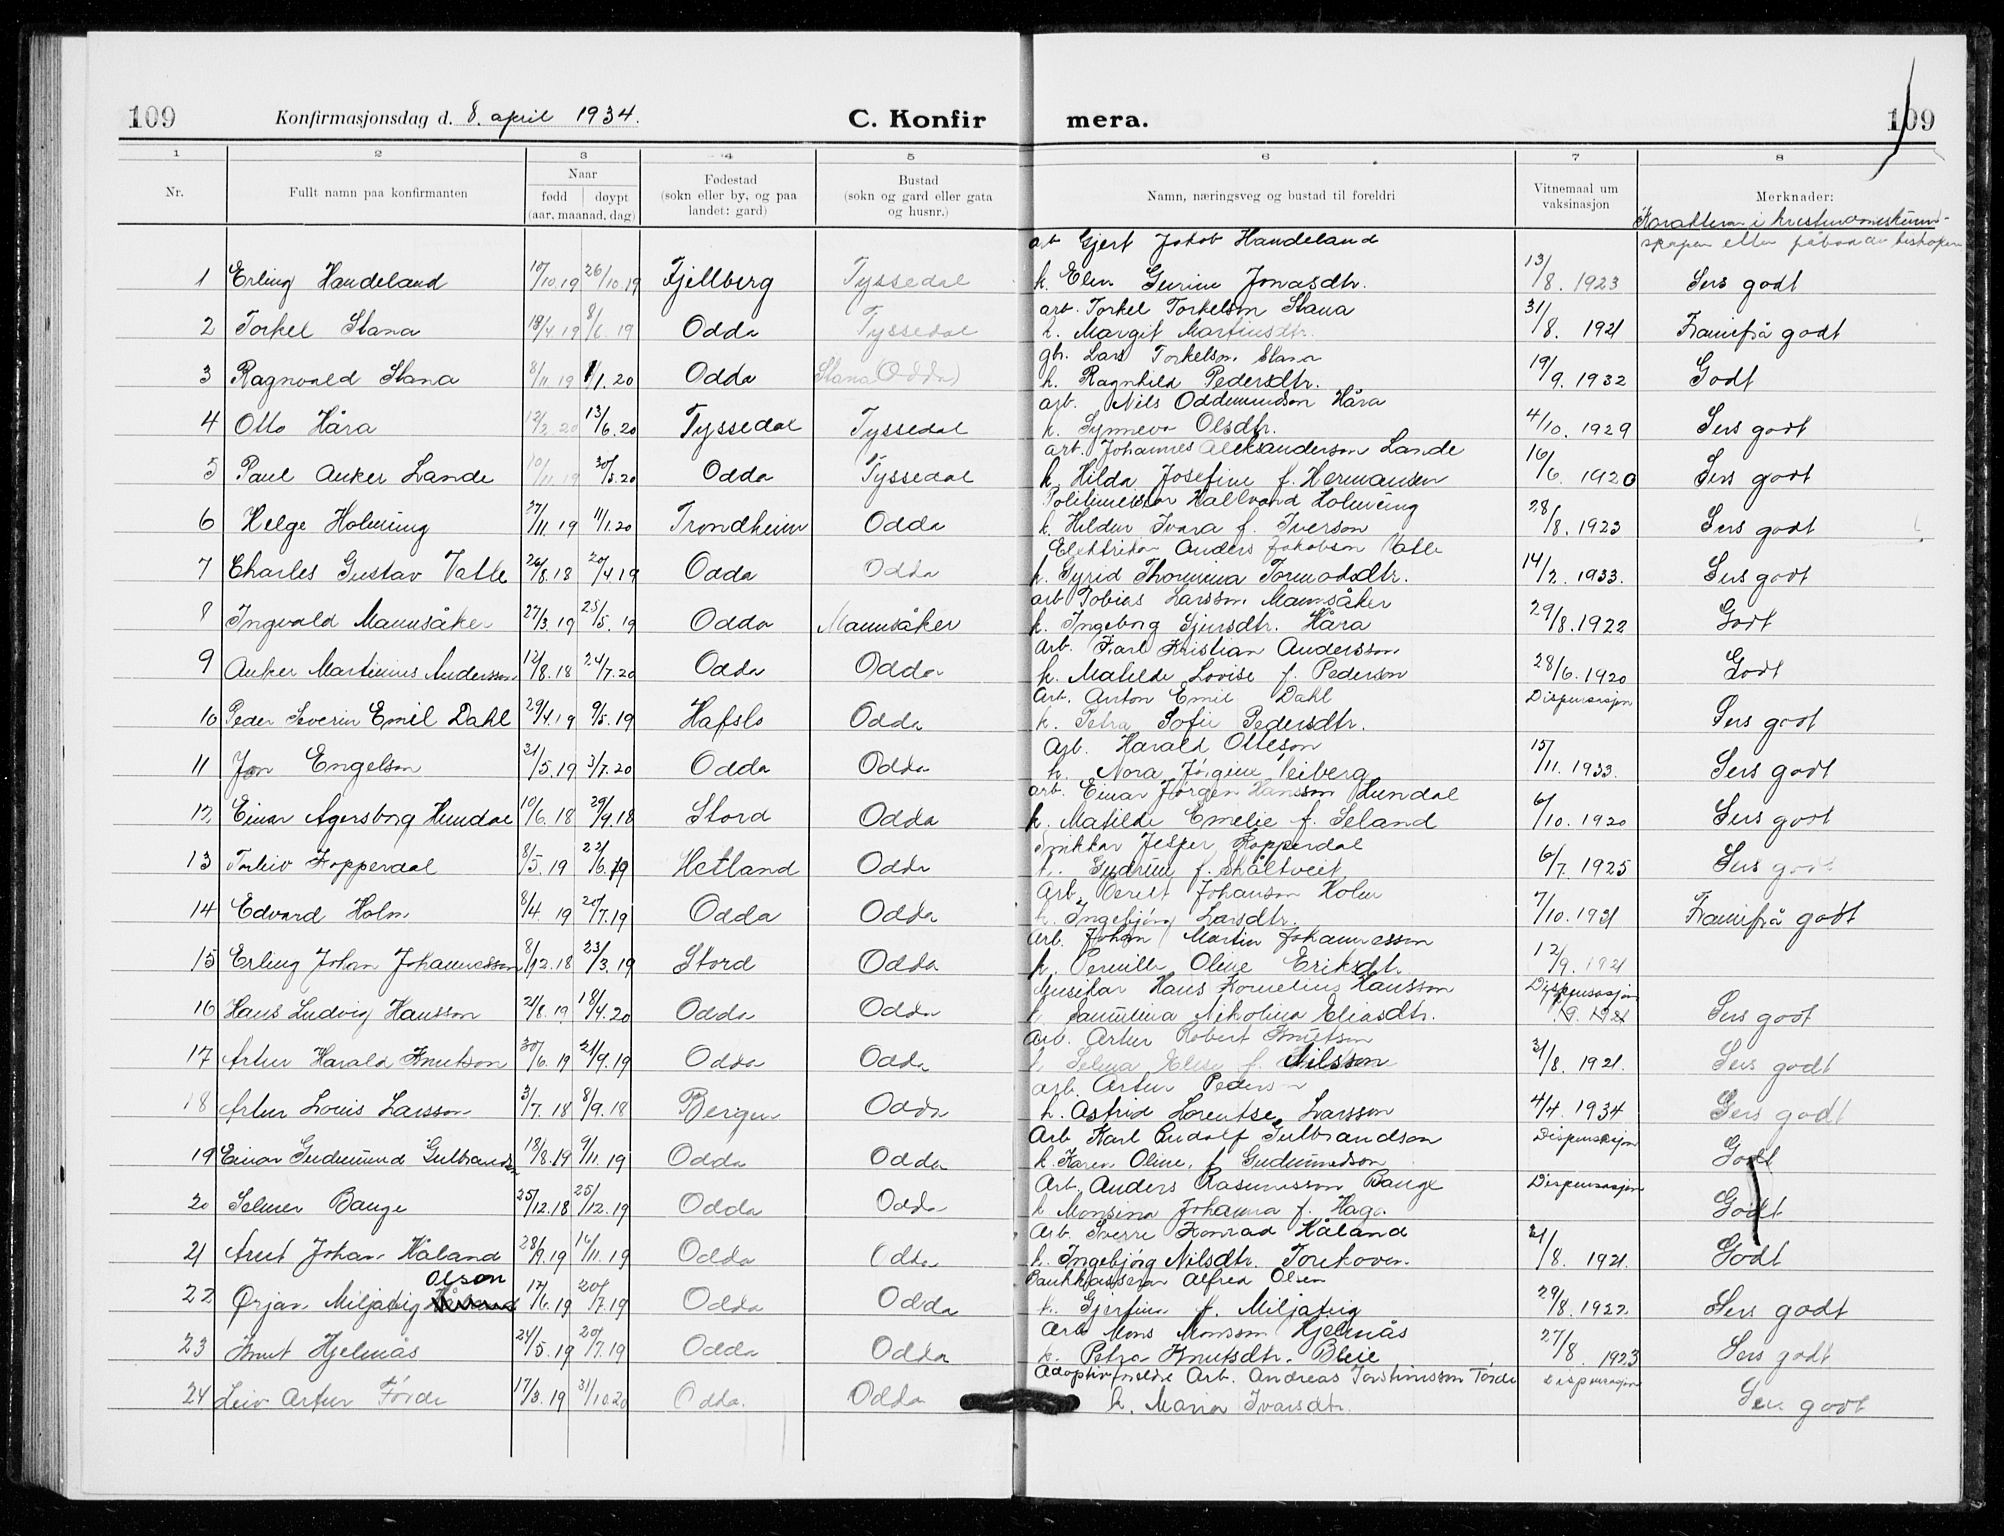 109 Konfirmasjonsdag d. 8. april 1934. C. Konfirmera. 109
1 2 3 4 5 6 7 8
Nr. Fullt namn paa konfirmanten Naar fødd døypt (aar, maanad, dag) Fødestad (sokn eller by, og paa landet: gard) Bustad (sokn og gard eller gata og husnr.) Namn, næringsveg og bustad til foreldri Vitnemaal um vaksinasjon Merknader:
Karakteren i kristendomskunnskapen etter påbod av biskopen
arb Gjert Jakob Handeland
1 Erling Handeland 17/10.19 26/10.19 Fjellberg Tyssedal k. Elen Gurine Jonasdtr. 13/8. 1923 Sers godt
arb. Torkel Torkelson Stana
2 Torkel Stana 18/4 19 8/6. 19 Odda Tyssedal k. Margit Martinsdtr. 31/8. 1921 Framifrå godt
gbr. Lars Torkelson Stana
3 Ragnvald Stana 8/11 19 1/1.20 Odda Stana (Odda) k. Ragnhild Pedersdtr. 19/9. 1932 Godt
arb. Nils Oddmundson Håra
4 Otto Håra 12/2 20 13/6.20 Tyssedal Tyssedal k. Synneva Olsdtr. 4/10. 1929 Sers godt
arb. Johannes Aleksanderson Lande
5 Paul Anker Lande 10/11.19 30/5.20 Odda Tyssedal k. Hilda Josefine f. Hermansen 16/6. 1920 Sers godt
Politimeister Hallvard Holming
6 Helge Holming 27/11.19 11/1.20 Trondheim Odda k. Hildur Ivara f. Iverson 28/8. 1923 Sers godt
Elektrikar Anders Jakobson Valle
7 Charles Gustav Valle 26/8.18 20/4.19 Odda Odda k. Gyrid Thormina Tormodsdtr. 14/2. 1933. Sers godt
arb Tobias Larsson Mannsåker
8 Ingvald Mannsåker 27/3.19 25/5.19 Odda Mannsåker k. Ingeborg Sjursdtr. Håra 29/8.1922 Godt
Arb. Karl Kristian Andersson
9 Anker Martinius Andersson 12/8.18 24/7.20 Odda Odda k. Matilde Lovise f. Pederson 28/6.1920 Godt
Arb. Anton Emil Dahl
10 Peder Severin Emil Dahl 29/4.19 9/5.19 Hafslo Odda k. Petra Sofie Pedersdtr. Dispensasjon Sers godt
Arb. Harald Otteson
11 Jon Engelson 31/5.19 3/7.20 Odda Odda k. Nora Jørgine Veiberg 15/11. 1933. Sers godt
arb. Einar Jørgen Hansson Hundal
12 Einar Agersborg Hundal 10/6.18 29/9.18 Stord Odda k. Matilde Emelie f. Seland 6/10. 1920 Sers godt
Snikkar Jesper Kopperdal
13 Torleiv Kopperdal 8/5.19 22/6.19 Hetland Odda k. Gudrun f. Skåltveit 6/7. 1925 Sers godt
Arb. Berelt Johanson Holm
14 Edvard Holm 8/4 19 20/7.19 Odda Odda k. Ingebjørg Larsdtr. 7/10.1921 Framifrå godt
Arb. Johan Martin Johannesson
15 Erling Johan Johannesson 8/12.18 23/3.19 Stord Odda k. Pernille Oline Eriksdtr. 12/9. 1921
Musikar Hans Kornelius Hansson
16 Hans Ludvig Hansson 21/8.19 18/4.20 Odda Odda k. Jamilina Nikolina Eliasdtr. Dispensasjon Sers godt
Arb. Artur Robert Knutson
17 Artur Harald Knutson 30/6.19 21/9.19 Odda Odda k. Selma Elise f. Nilsson 31/8. 1921. Sers godt
arb. Artur Pederson
18 Artur Louis Larsson 3/7.18 8/9.18 Bergen Odda k. Astrid Lorentse Larsson 4/4. 1934 Sers godt
Arb. Karl Rudolf Gulbrandson
19 Einar Gudmund Gulbrandson 18/8.19 9/11.19 Odda Odda k. Karen Oline f. Gudmundson Dispensasjon Godt
Arb. Anders Rasmusson Bauge
20 Selmer Bauge 25/12.18 25/12.19 Odda Odda k Monsina Johanna f. Haga Dispensasjon Godt
Arb. Sverre Konrad Håland
21 Arnt Johan Håland 28/9.19 16/11.19 Odda Odda k. Ingebjørg Nilsdtr. Torekoven 21/8. 1921. Godt
Bankkasserar Alfred Olsen
22 Ørjan Miljeteig Olson 17/6.19 20/7.19 Odda Odda k. Gjertine f. Miljeteig 29/8.1922 Sers godt
Arb Mons Monsson Hjelmås
23 Knut Hjelmås 24/5.19 20/7.19 Odda Odda k. Petra Knutsdtr. Bleie 27/8. 1923 Sers godt
Adoptivforeldre Arb. Andreas Torstinsson Førde
24 Leiv Artur Førde 17/3.19 31/10.20 Odda. Odda k. Maria Ivarsdtr. Dispensasjon Sers godt